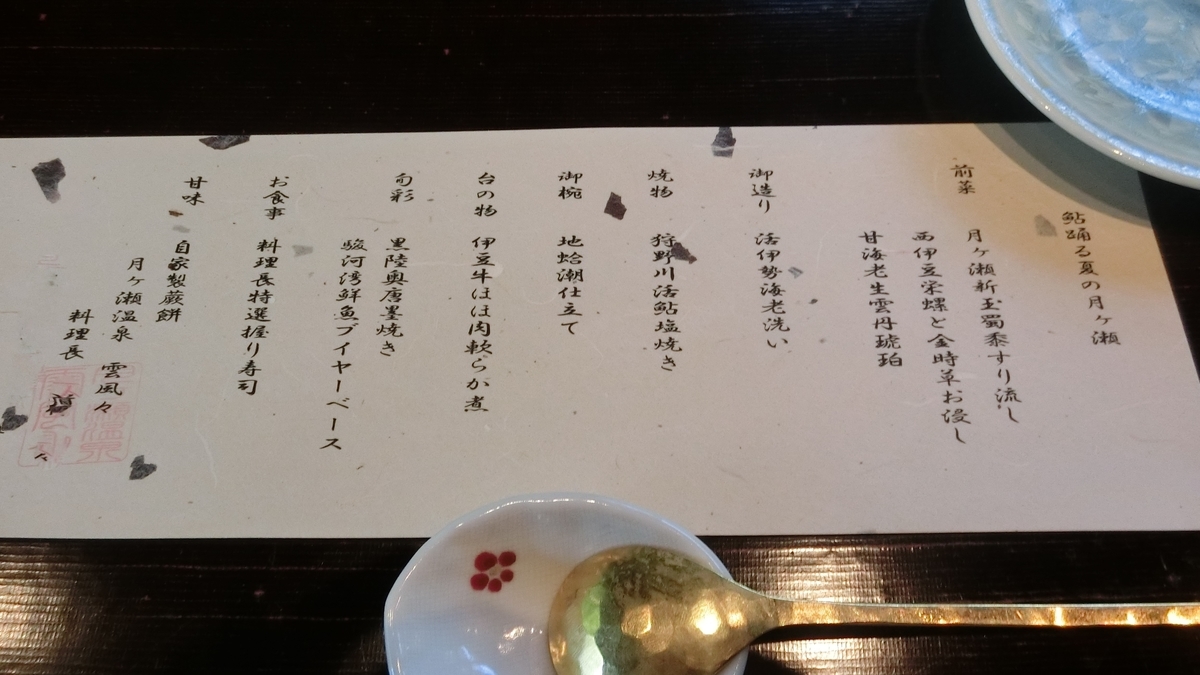 鮎踊る夏の月ヶ瀬
前菜
月ヶ瀬新玉蜀黍すり流し
西伊豆栄螺と金時草お浸し
甘海老生雲丹琥珀
御造り
活伊勢海老洗い
焼物
狩野川活鮎塩焼き
御椀
地蛤潮仕立て
台の物
伊豆牛ほほ肉軟らか煮
旬彩
黒陸奥唐墨焼き
駿河湾鮮魚ブイヤーベース
お食事
料理長特選握り寿司
甘味
自家製蕨餅
月ヶ瀬温泉 雲風々
料理長